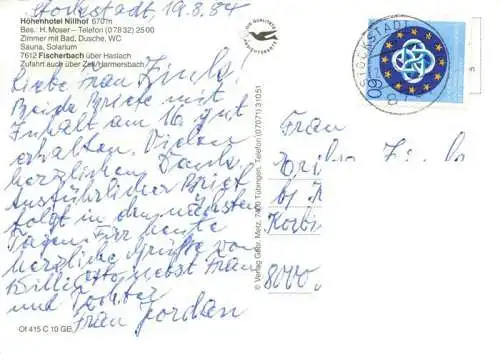 Stockstadt, 19.8.84
Höhenhotel Nillhof 670 m
Bes.: H. Moser – Telefon (07832) 2500
Zimmer mit Bad, Dusche, WC
Sauna, Solarium
7612 Fischerbach über Haslach
Zufahrt auch über Zell/Harmersbach
Liebe Frau
Beide Briefe mit
Inhalt am 16. gut
erhalten. Vielen
herzlichen Dank.
Ausführlicher Brief
folgt in den nächsten
Tagen. Für heute
herzliche Grüße von
nebst Frau
und Tochter
Frau Jordan
Of 415 C 10 GE
© Verlag Gebr. Metz, 7400 Tübingen, Telefon (07071) 31051
STOCKSTADT
Frau
8000